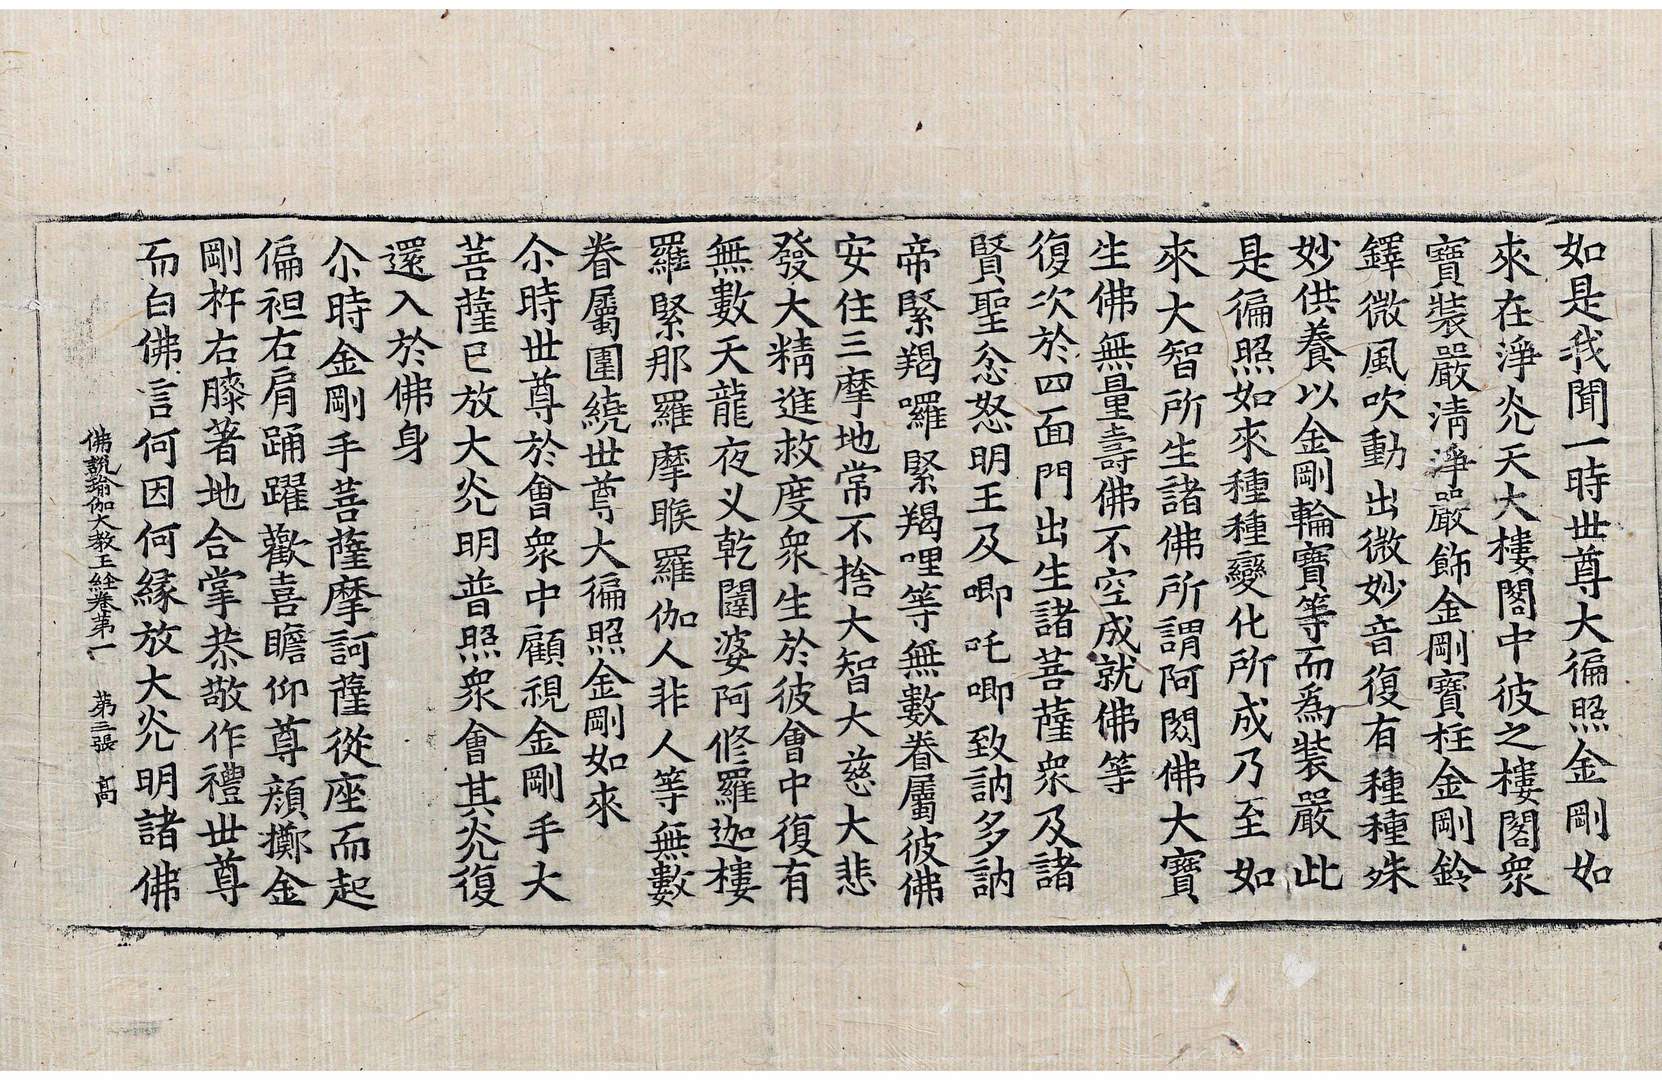 如是我聞一時世尊大徧照金剛如
來在淨光天大樓閣中彼之樓閣衆
寶裝嚴清淨嚴飾金剛寶柱金剛鈴
鐸微風吹動出微妙音復有種種殊
妙供養以金剛輪寶等而爲裝嚴此
是徧照如來種種變化所成乃至如
來大智所生諸佛所謂阿閦佛大寶
生佛無量壽佛不空成就佛等
復次於四面門出生諸菩薩衆及諸
賢聖忿怒明王及唧吒唧致訥多訥
帝緊羯囉緊羯哩等無數眷屬彼佛
安住三摩地常不捨大智大慈大悲
發大精進救度衆生於彼會中復有
無數天龍夜叉乾闥婆阿修羅迦樓
羅緊那羅摩睺羅伽人非人等無數
眷屬圍繞世尊大徧照金剛如來
尒時世尊於會衆中顧視金剛手大
菩薩已放大光明普照衆會其光復
還入於佛身
尒時金剛手菩薩摩訶薩從座而起
偏袒右肩踊躍歡喜瞻仰尊顔擲金
剛杵右膝著地合掌恭敬作禮世尊
而白佛言何因何緣放大光明諸佛
佛說瑜伽大教王經卷第一 第三張 高